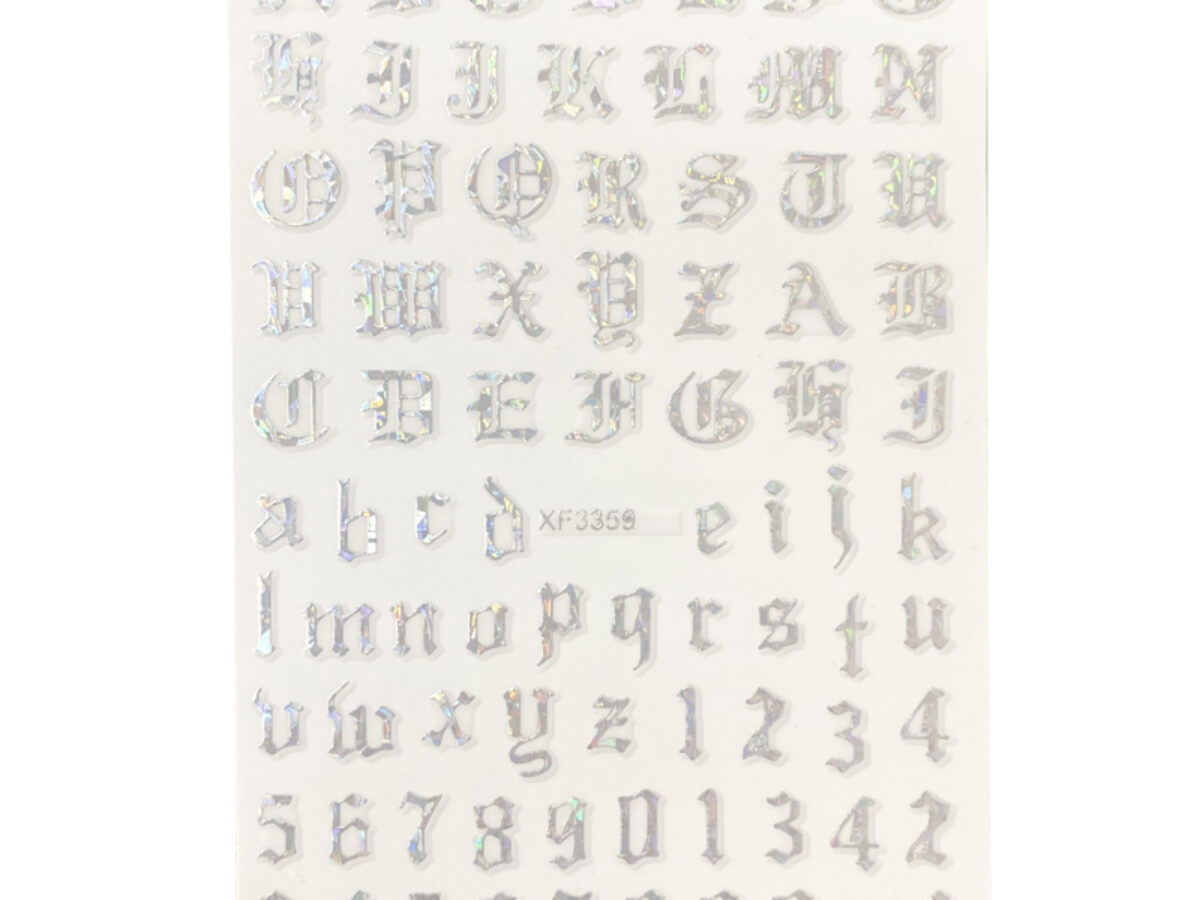 H I J K L M N
O P Q R S T U
V W X Y Z A B
C D E F G H I
a b c d XF3359 e i j k
l m n o p q r s t u
v w x y z 1 2 3 4
5 6 7 8 9 0 1 3 4 2